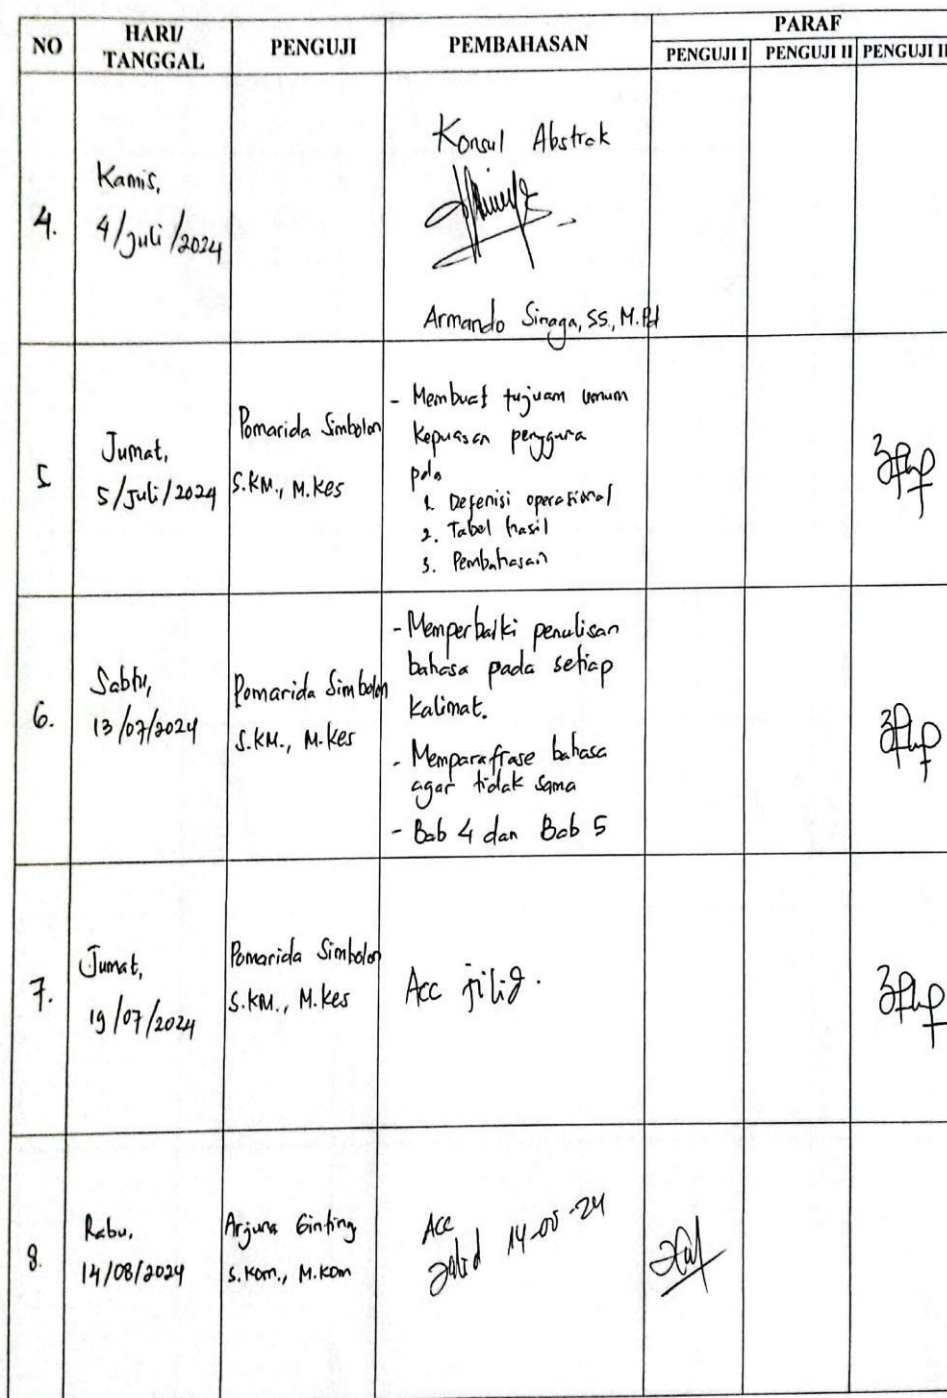 NO
HARI/
TANGGAL
PENGUJI
PEMBAHASAN
PARAF
PENGUJI I
PENGUJI II
PENGUJI II
4.
Kamis,
4/Juli/2024
Konsul Abstrak
Armando Sinaga, SS., M.Pd
5
Jumat,
5/Juli/2024
Pomarida Simbolon
S.KM., M.Kes
- Membuat tujuan umum
Kepuasan pengguna
pda
1. Defenisi operasional
2. Tabel hasil
3. Pembahasan
6.
Sabtu,
13/07/2024
Pomarida Simbolon
S.KM., M.Kes
- Memperbaiki penulisan
bahasa pada setiap
kalimat.
- Memparafrase bahasa
agar tidak sama
- Bab 4 dan Bab 5
7.
Jumat,
19/07/2024
Pomarida Simbolon
S.KM., M.Kes
Acc jilid.
8.
Rabu,
14/08/2024
Arjuna Ginting
S.Kom., M.Kom
Acc